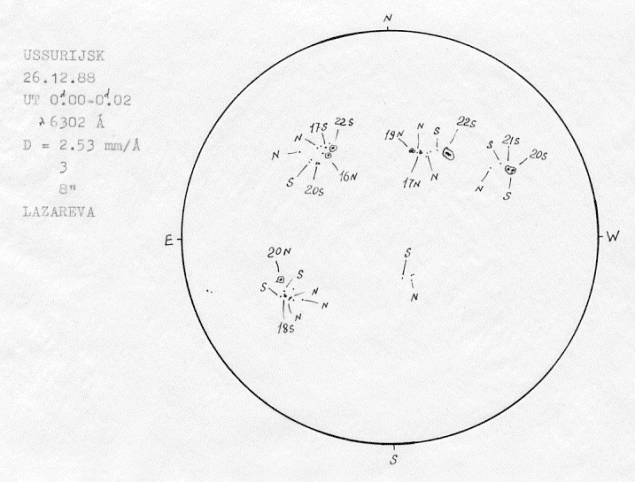 USSURIJSK
26.12.88
UT 0ᵈ.00-0ᵈ.02
λ6302 Å
D = 2.53 mm/Å
3
8"
LAZAREVA
N
17S 22S
N
N
S
20S
16N
19N N S 22S
17N N
S 21S 20S
N S
E
W
20N
S
S
N
N
N
18S
S
N
S